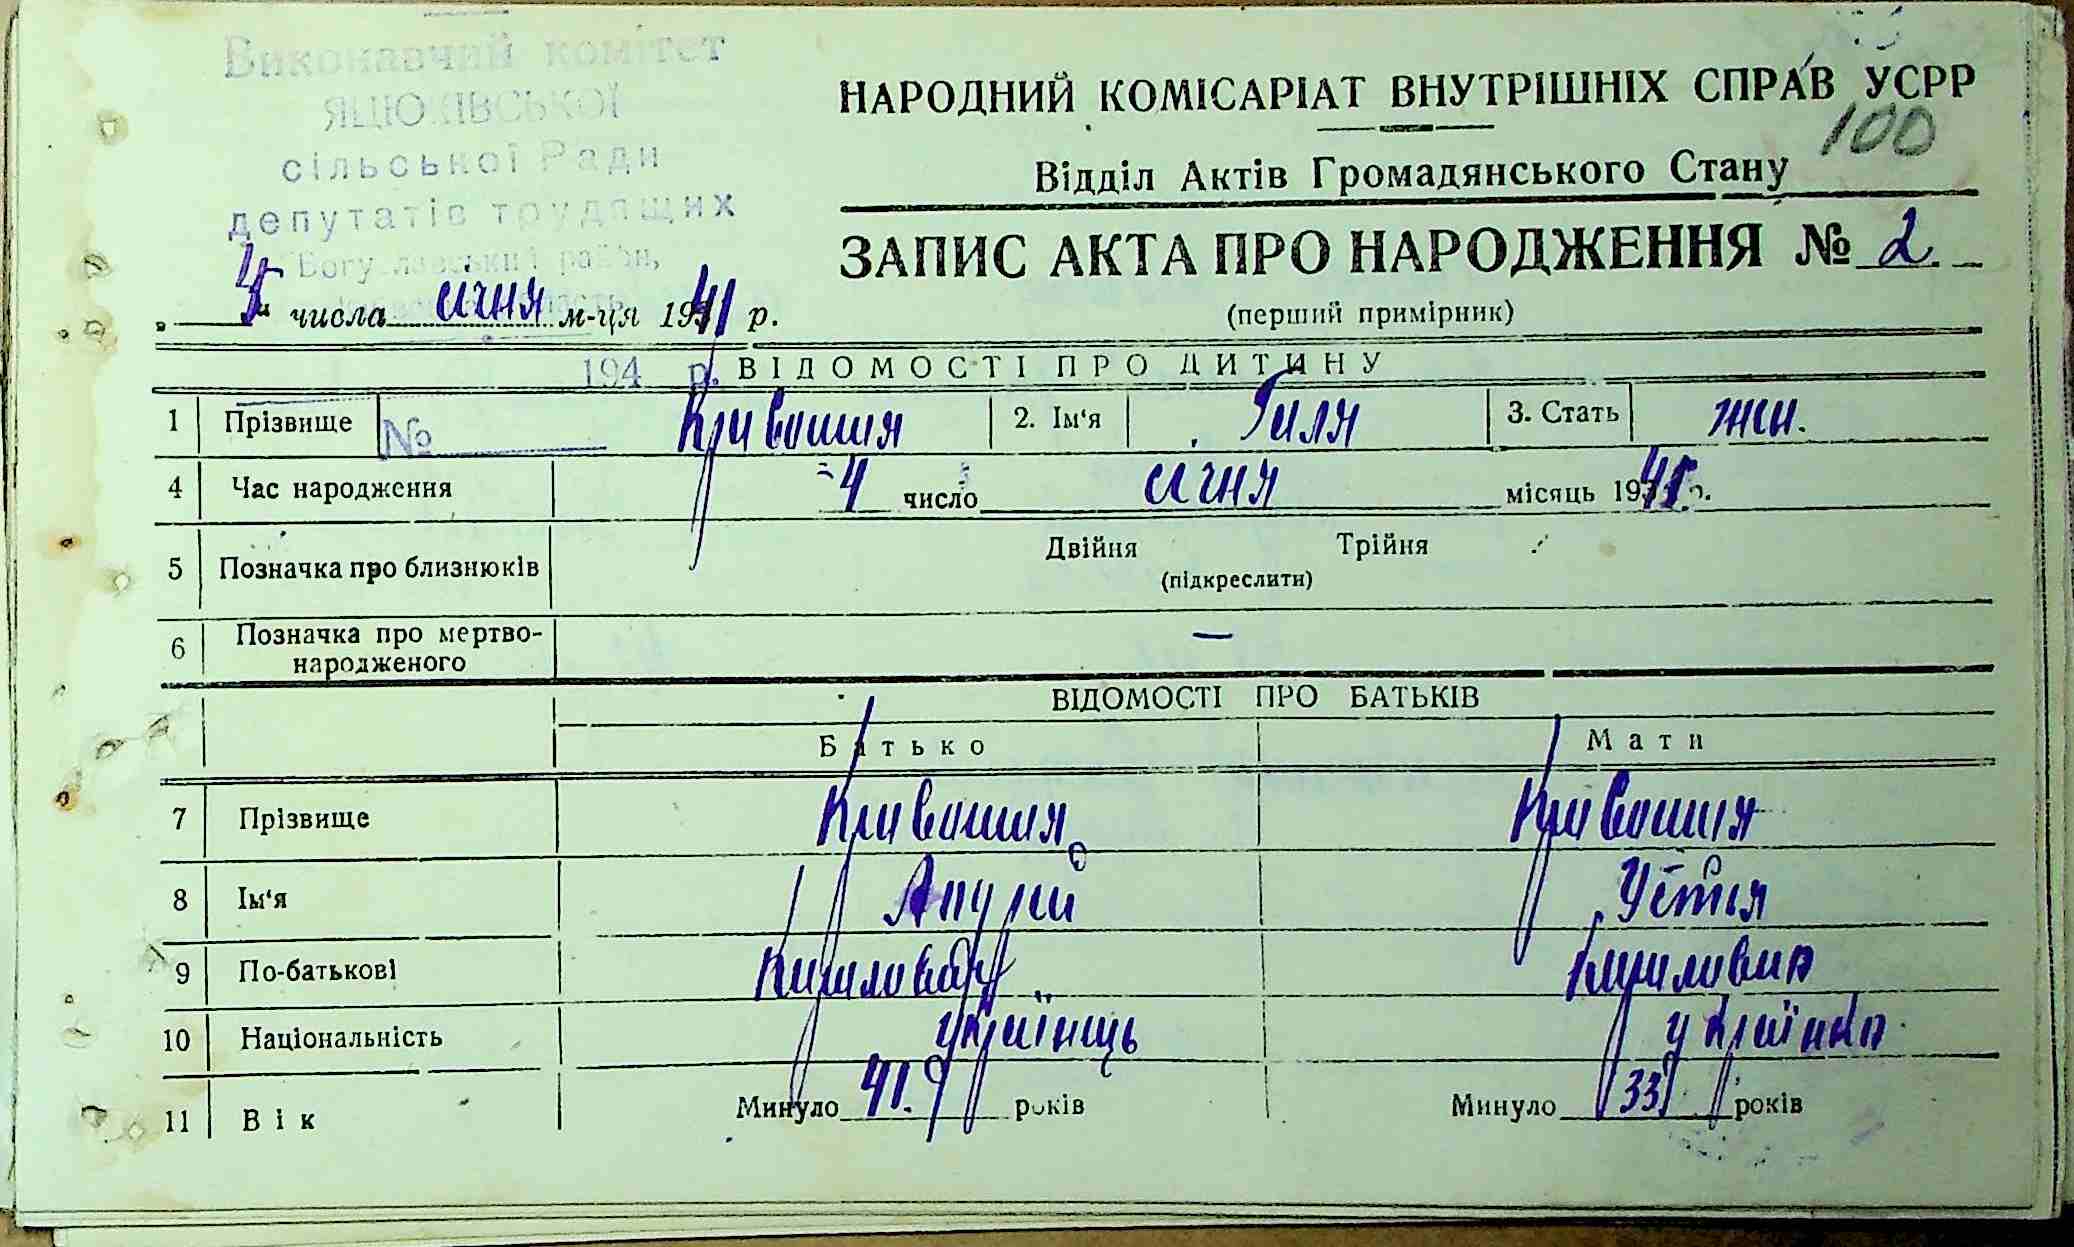 Виконавчий комітет
сільської Ради
депутатів трудящих
Богуславський район,
НАРОДНИЙ КОМІСАРІАТ ВНУТРІШНІХ СПРАВ УСРР
100
Відділ Актів Громадянського Стану
ЗАПИС АКТА ПРО НАРОДЖЕННЯ № 2.
(перший примірник)
числа січня м-ця 1941 р.
194 р.
ВІДОМОСТІ ПРО ДИТИНУ
1 Прізвище № Кривошия 2. Ім'я Галя 3. Стать жін.
4 Час народження 4 число січня місяць 1941 р.
5 Позначка про близнюків Двійня Трійня
(підкреслити)
6 Позначка про мертво-
народженого —
ВІДОМОСТІ ПРО БАТЬКІВ
Батько Мати
7 Прізвище Кривошия Кривошия
8 Ім'я Андрій Устія
9 По-батькові Кирилович Кириловна
10 Національність українець українка
11 Вік Минуло 41 років Минуло 33 років